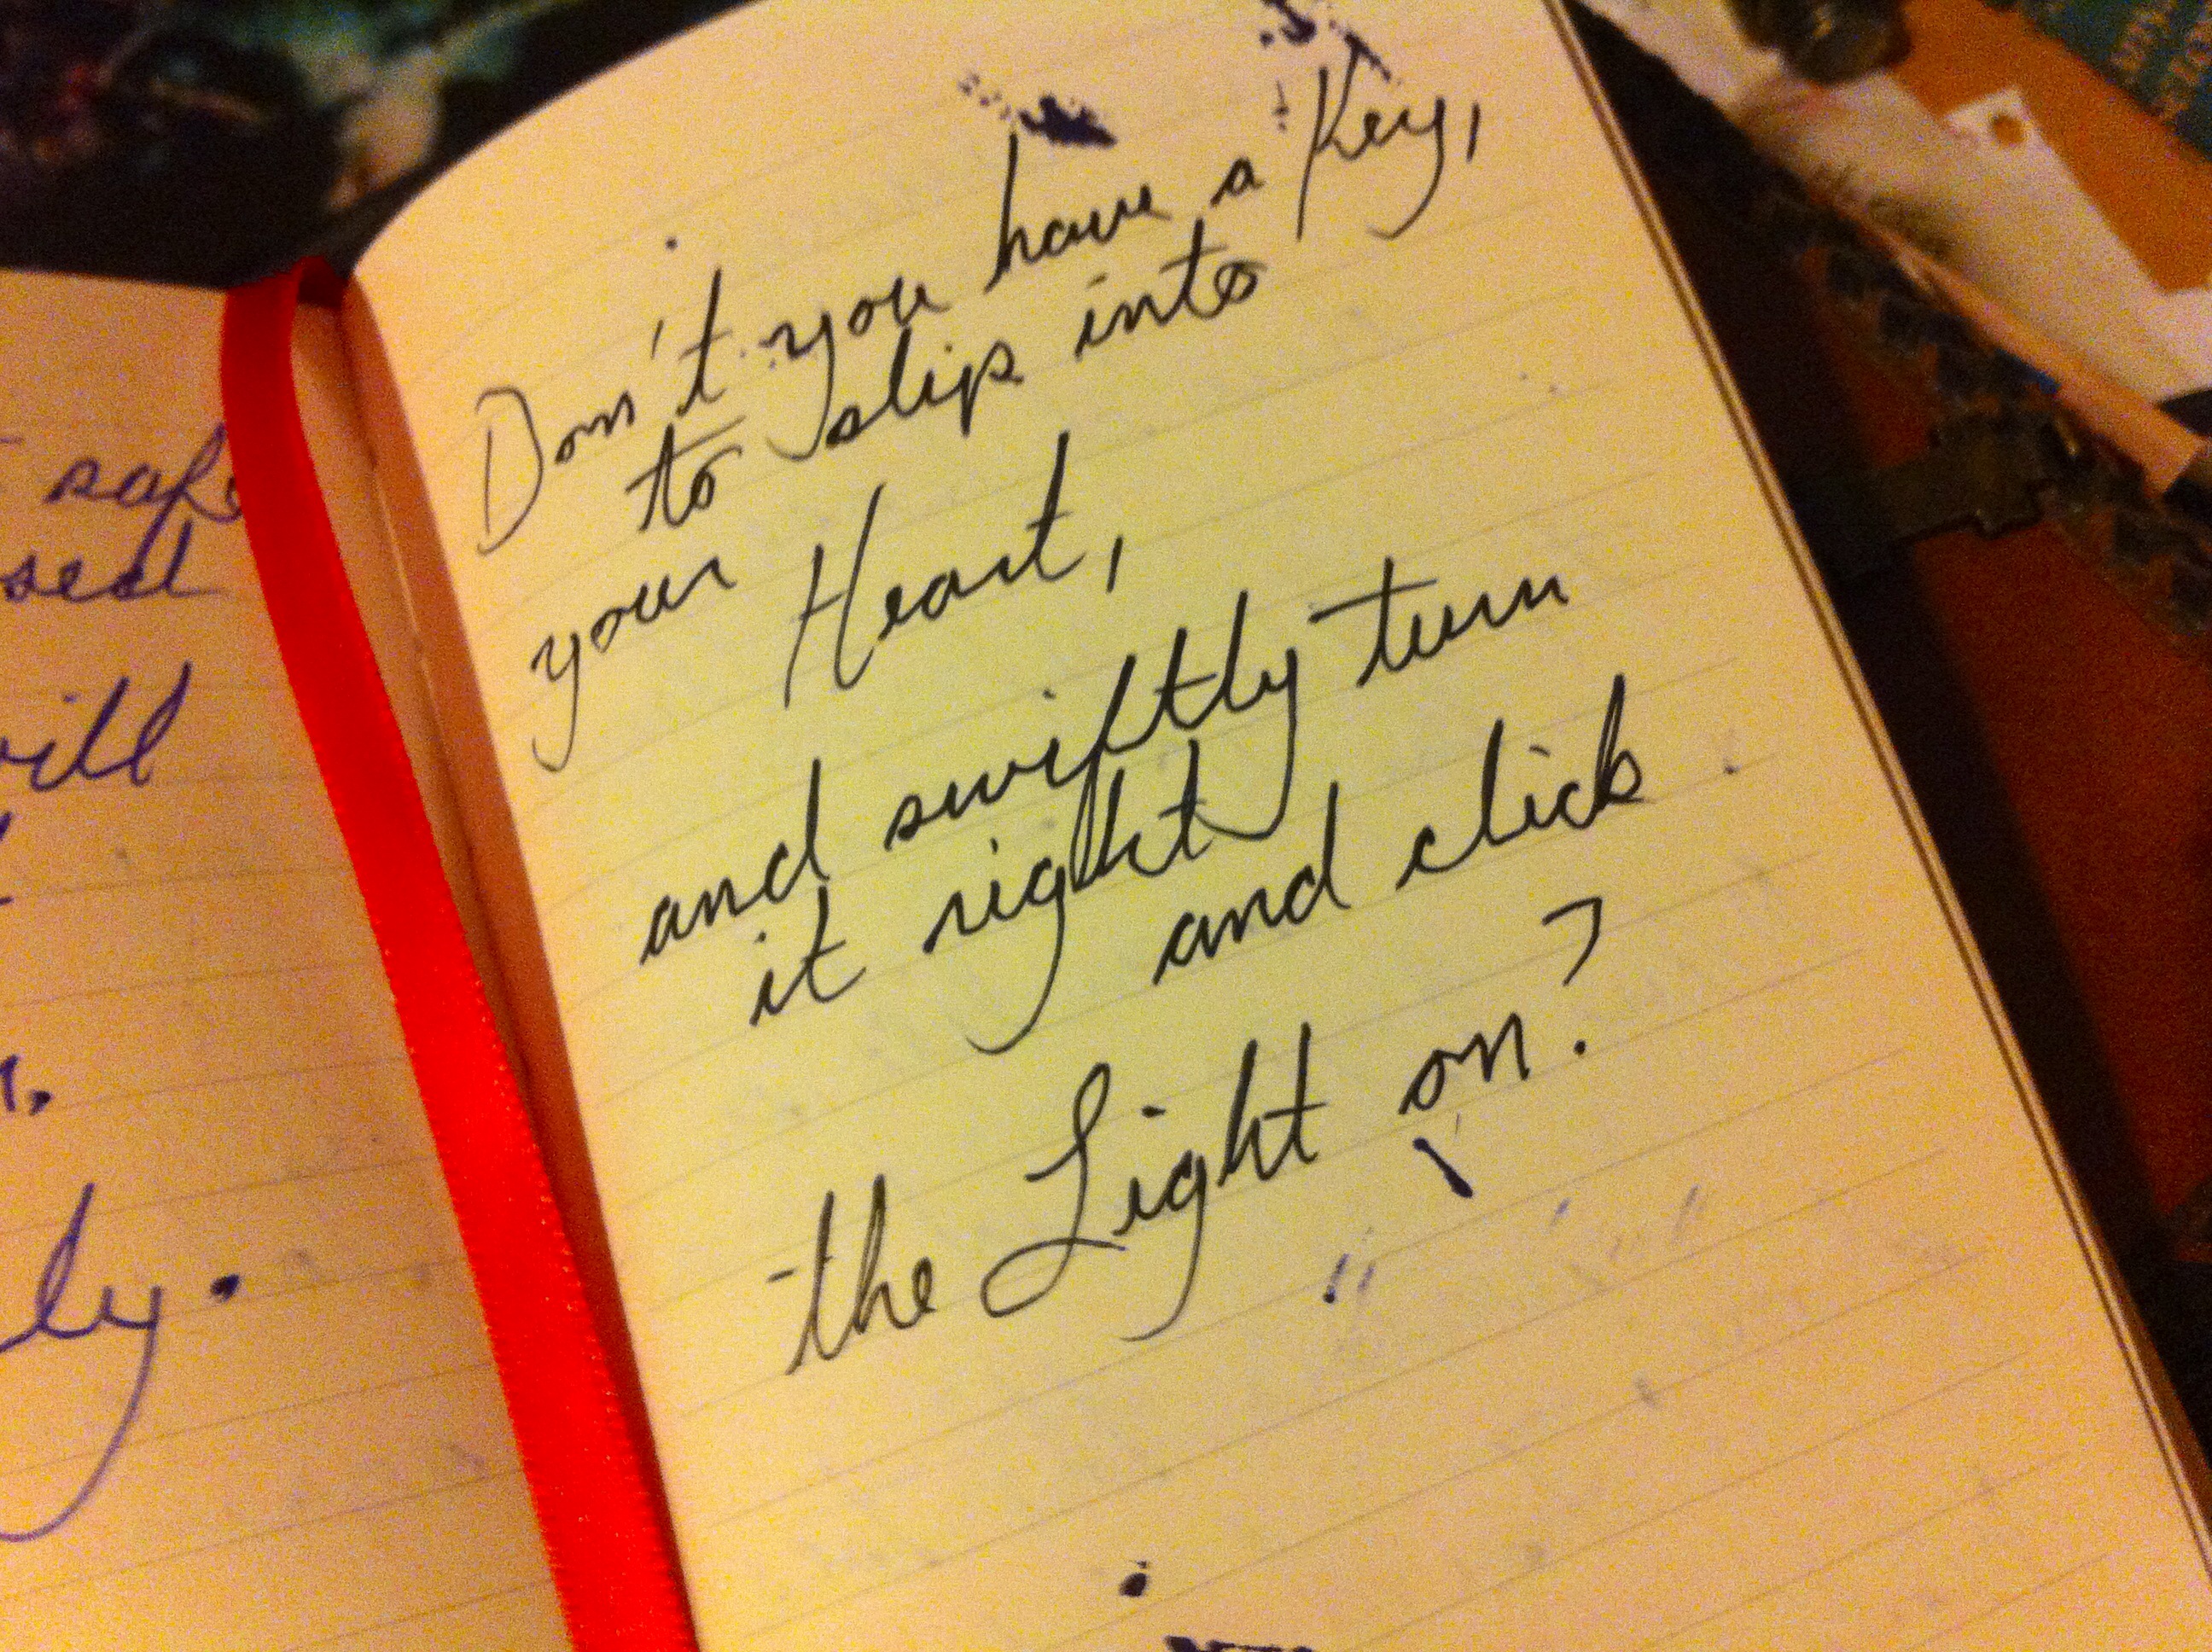 safe
will
ly.
Don't you have a Key,
to slip into
your Heart,
and swiftly turn
it right and click
the Light on?